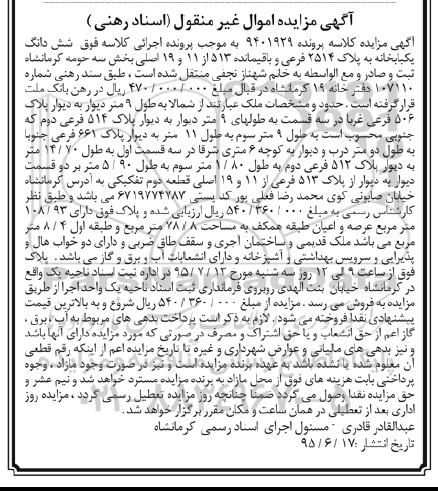 آگهی مزایده اموال غیر منقول (اسناد رهنی)
آگهی مزایده کلاسه پرونده ۹۴۰۱۹۲۹ به موجب پرونده اجرائی کلاسه فوق شش دانگ
یکبابخانه به پلاک ۲۵۱۴ فرعی و باقیمانده ۵۱۳ از ۱۱ و ۱۹ اصلی بخش سه حومه کرمانشاه
ثبت و صادر و مع الواسطه به خانم شهناز نجفی منتقل شده است ، طبق سند رهنی شماره
۱۰۷۱۱۰ دفتر خانه ۱۹ کرمانشاه در قبال مبلغ ۴۷۰/۰۰۰/۰۰۰ ریال در رهن بانک ملت
قرار گرفته است . حدود و مشخصات ملک عبارتند از شمالا به طول ۹ متر دیوار به دیوار پلاک
۵۰۶ فرعی غربا در سه قسمت به طولهای ۹ متر دیوار به دیوار پلاک ۵۱۴ فرعی دوم که
جنوبی محسوب است به طول ۹ متر سوم به طول ۱۱ متر به دیوار پلاک ۶۶۱ فرعی جنوبا
به طول دو متر درب و دیوار به کوچه ۶ متری شرقا در سه قسمت اول به طول ۱۴/۷۰ متر
به دیوار پلاک ۵۱۲ فرعی دوم به طول ۱/۸۰ متر سوم به طول ۵/۹۰ متر بر دو قسمت
دیوار به دیوار از پلاک ۵۱۳ فرعی از ۱۱ و ۱۹ اصلی قطعه دوم تفکیکی به آدرس کرمانشاه
خیابان صابونی کوی محمد رضا فعلی پور کد پستی ۶۷۱۹۷۷۴۷۸۳ می باشد و طبق نظر
کارشناس رسمی به مبلغ ۵۴۰/۳۶۰/۰۰۰ ریال ارزیابی شده و پلاک فوق دارای ۱۰۸/۹۳
متر مربع عرصه و اعیان طبقه همکف به مساحت ۷۸/۸ متر مربع و طبقه اول ۸/۴ متر
مربع می باشد ملک قدیمی و ساختمان آجری و سقف طاق ضربی و دارای دو خواب هال و
پذیرایی و سرویس بهداشتی و آشپزخانه و دارای انشعابات آب و برق و گاز می باشد . پلاک
فوق از ساعت ۹ الی ۱۲ روز سه شنبه مورخ ۹۵/۷/۱۳ در اداره ثبت اسناد ناحیه یک واقع
در کرمانشاه خیابان بنت الهدی روبروی فرمانداری ثبت اسناد ناحیه یک واحد اجرا از طریق
مزایده به فروش می رسد . مزایده از مبلغ ۵۴۰/۳۶۰/۰۰۰ ریال شروع و به بالاترین قیمت
پیشنهادی نقدا فروخته می شود . لازم به ذکر است پرداخت بدهی های مربوط به آب ، برق ،
گاز اعم از حق انشعاب و یا حق اشتراک و مصرف در صورتی که مورد مزایده دارای آنها باشد
و نیز بدهی های مالیاتی و عوارض شهرداری و غیره تا تاریخ مزایده اعم از اینکه رقم قطعی
آن معلوم شده یا نشده باشد به عهده برنده مزایده است و نیز در صورت وجود مازاد ، وجوه
پرداختی بابت هزینه های فوق از محل مازاد به برنده مزایده مسترد خواهد شد و نیم عشر و
حق مزایده نقدا وصول می گردد ضمنا چنانچه روز مزایده تعطیل رسمی گردد ، مزایده روز
اداری بعد از تعطیلی در همان ساعت و مکان مقرر برگزار خواهد شد .
عبدالقادر قادری - مسئول اجرای اسناد رسمی کرمانشاه
تاریخ انتشار : ۹۵/۶/۱۷